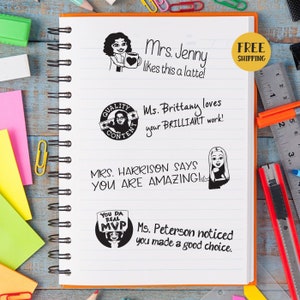 FREE
SHIPPING
Mrs. Jenny
likes this a latte!
QUALITY
CONTENT
Ms. Brittany loves
your BRILLIANT work!
MRS. HARRISON SAYS
YOU ARE AMAZING!
YOU DA
REAL
MVP
Ms. Peterson noticed
you made a good choice.